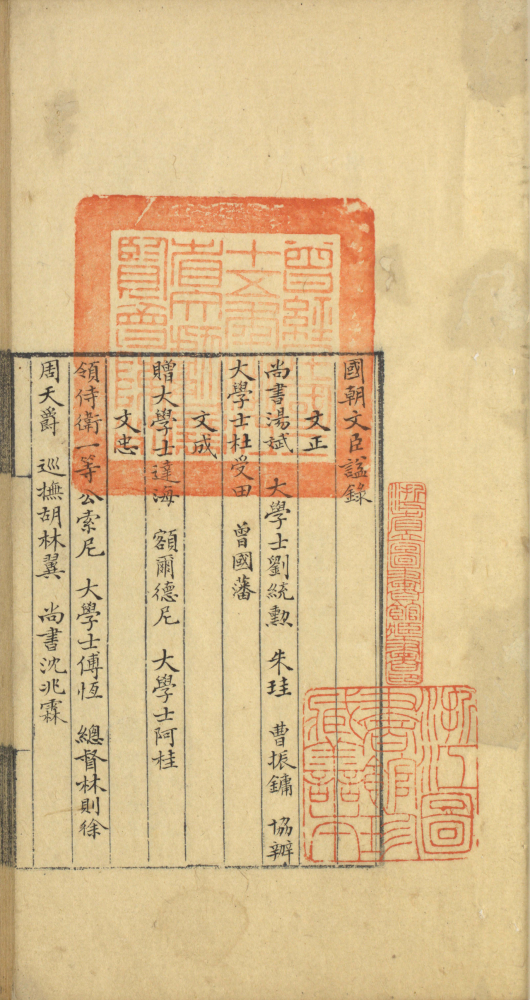 國朝文臣諡錄
文正
尚書湯斌 大學士劉統勲 朱珪 曹振鏞 協辦
大學士杜受田 曾國藩
文成
贈大學士達海 額爾德尼 大學士阿桂
文忠
領侍衛一等公索尼 大學士傅恆 總督林則徐
周天爵 巡撫胡林翼 尚書沈兆霖
浙江圖
書館珍
藏善本